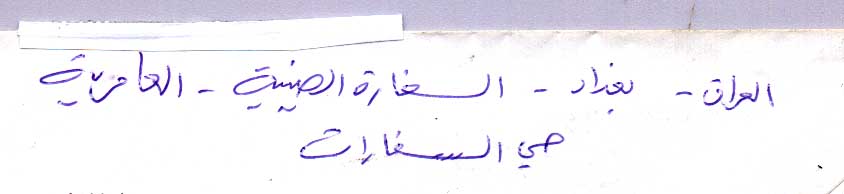 العراق - بغداد - السفارة الصينية - العامرية
حي السفارات